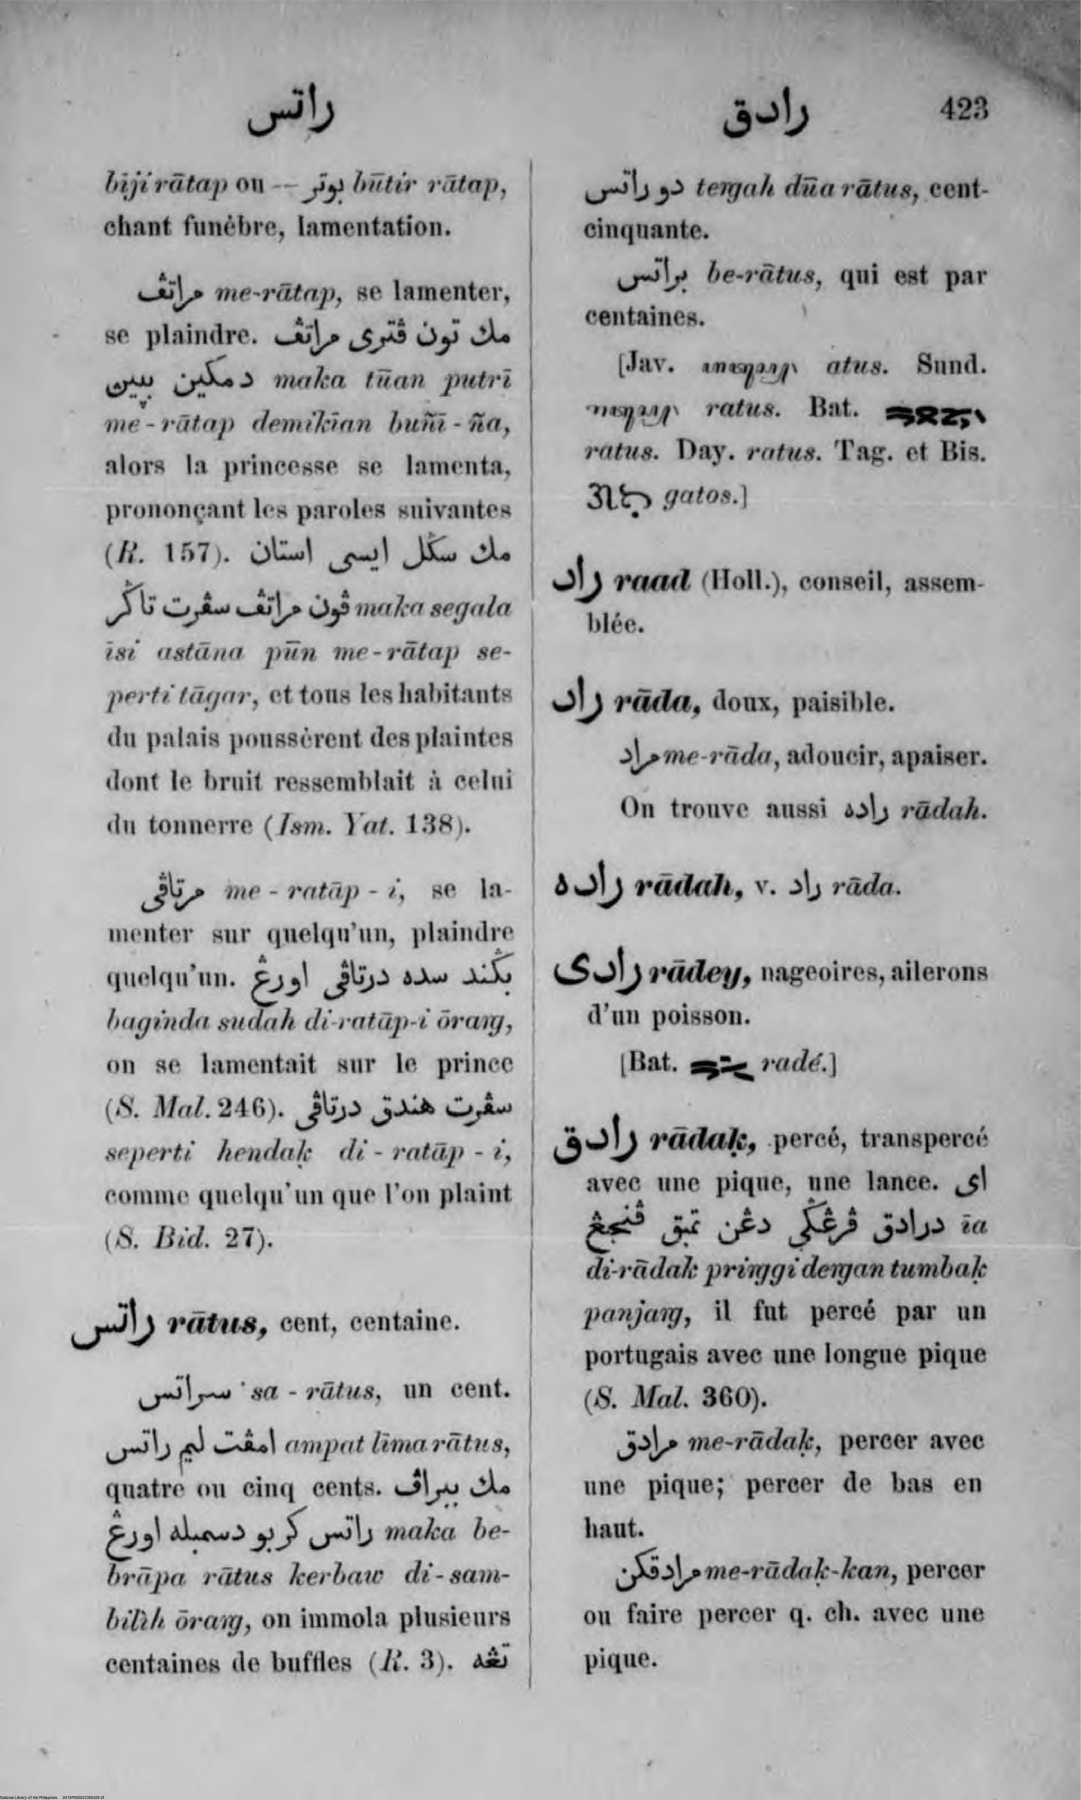 راتس
رادق
423
biji rātap ou — بوتر būtir rātap,
chant funèbre, lamentation.
مراتڤ me-rātap, se lamenter,
se plaindre. مك تون ڤتری مراتڤ
دمكين maka tūan putrī
me-rātap demikīan buñī-ña,
alors la princesse se lamenta,
prononçant les paroles suivantes
(R. 157). مك سݢل ايسی استان
ڤون مراتڤ سڤرت تاݢر maka segala
īsi astāna pūn me-rātap se-
perti tāgar, et tous les habitants
du palais poussèrent des plaintes
dont le bruit ressemblait à celui
du tonnerre (Ism. Yat. 138).
مرتاڤی me-ratāp-i, se la-
menter sur quelqu'un, plaindre
quelqu'un. بݢند سده درتاڤی اورڠ
baginda sudah di-ratāp-i ōrang,
on se lamentait sur le prince
(S. Mal. 246). سڤرت هندق درتاڤی
seperti hendaḳ di-ratāp-i,
comme quelqu'un que l'on plaint
(S. Bid. 27).
راتس rātus, cent, centaine.
سراتس sa-rātus, un cent.
امڤت ليم راتس ampat līma rātus,
quatre ou cinq cents. مك ببراڤ
راتس كربو دسمبله اورڠ maka be-
brāpa rātus kerbaw di-sam-
bilih ōrang, on immola plusieurs
centaines de buffles (R. 3). تڠه
دو راتس tengah dūa rātus, cent-
cinquante.
براتس be-rātus, qui est par
centaines.
[Jav. atus. Sund.
ratus. Bat.
ratus. Day. ratus. Tag. et Bis.
gatos.]
راد raad (Holl.), conseil, assem-
blée.
راد rāda, doux, paisible.
مراد me-rāda, adoucir, apaiser.
On trouve aussi راده rādah.
راده rādah, v. راد rāda.
رادی rādey, nageoires, ailerons
d'un poisson.
[Bat. radé.]
رادق rādaḳ, percé, transpercé
avec une pique, une lance. ای
درادق ڤرڠݢی دڠن تمبق ڤنجڠ īa
di-rādak pringgi dengan tumbaḳ
panjang, il fut percé par un
portugais avec une longue pique
(S. Mal. 360).
مرادق me-rādaḳ, percer avec
une pique; percer de bas en
haut.
مرادقكن me-rādaḳ-kan, percer
ou faire percer q. ch. avec une
pique.